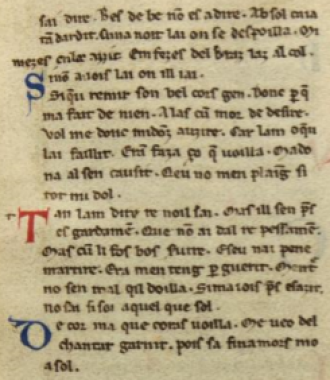 sai dire. Res de be nõ es adire. Ab sol cuia
tã dardit. Cuna noit lai on se despoilla. Mi
mezes en lac aizit. Em feses del braz laz al col.
Sinõ a uois lai on ill iai.
Si qu remir son bel cors gen. Donc ꝑ q̃
ma fait de nien. A las cũ moir de desire.
Vol me donc midõz aucire. Car lam o qu
lai faillit. Erã faza ço q̃ uoilla. Mado
na al sen causit. Qeu no men plaig̃ si
tot mi dol.
Tan lam de re noil sai. Mas ill sen ps̃
es gardamẽ. Que nõ ai dal re pessamẽ.
Mas cũ li fos bos seruire. Eseu nai pene
martire. Era men teng ꝑ guerit.
no sen tral qil doilla. Si ma uois ps̃
no sui si soi aquel que sol.
De cor ma que cors uoilla. Me ueo del
chantar garnit. pois sa finamors mi o
asol.